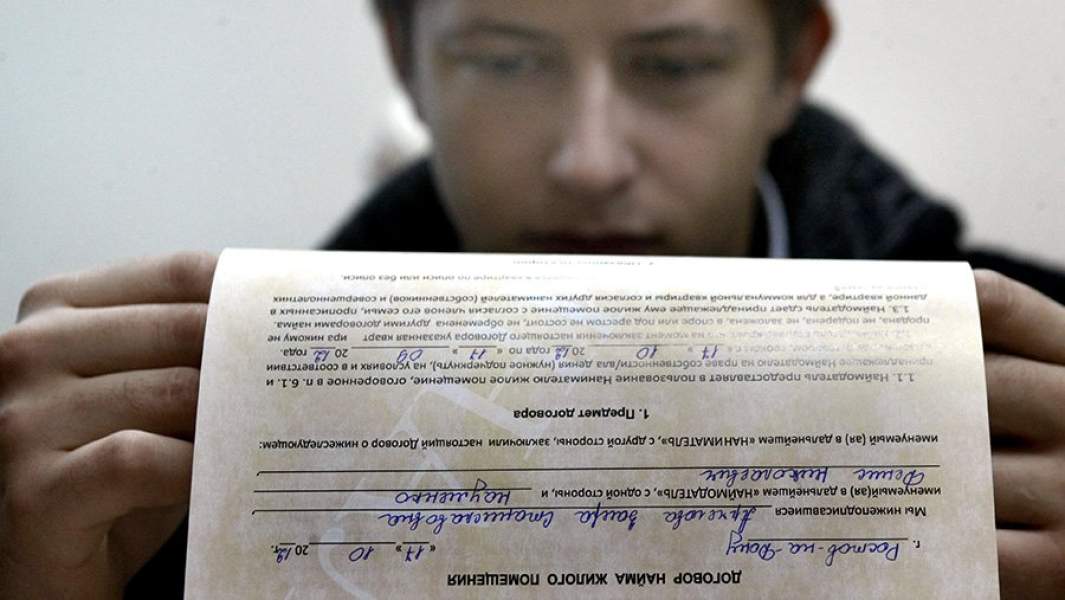 ДОГОВОР НАЙМА ЖИЛОГО ПОМЕЩЕНИЯ
г. Ростов-на-Дону « 17 » 10 20 12 г.
Мы нижеподписавшиеся Заира Станиславовна
именуемый(ая) в дальнейшем «НАЙМОДАТЕЛЬ», с одной стороны, и Науменко
Николаевич
именуемый (ая) в дальнейшем «НАНИМАТЕЛЬ», с другой стороны, заключили настоящий Договор о нижеследующем:
1. Предмет договора
1.1. Наймодатель предоставляет в пользование Нанимателю жилое помещение, оговоренное в п. 6.1. и
принадлежащее Наймодателю на праве собственности/вла дения (нужное подчеркнуть), на условиях и в соответствии
17 » 10 20 12 года по « 17 » 09 20 12 года.
на момент заключения настоящего Договора указанная кварт ира никому не
продана, не подарена, не заложена, в споре или под арестом не состоит, не обременена другими договорами найма.
1.3. Наймодатель сдает принадлежащее ему жилое помещение с согласия членов его семьи, прописанных в
данной квартире, а для коммунальной квартиры и согласия других нанимателей (собственников) и совершеннолетних
в квартире по описи или без описи.